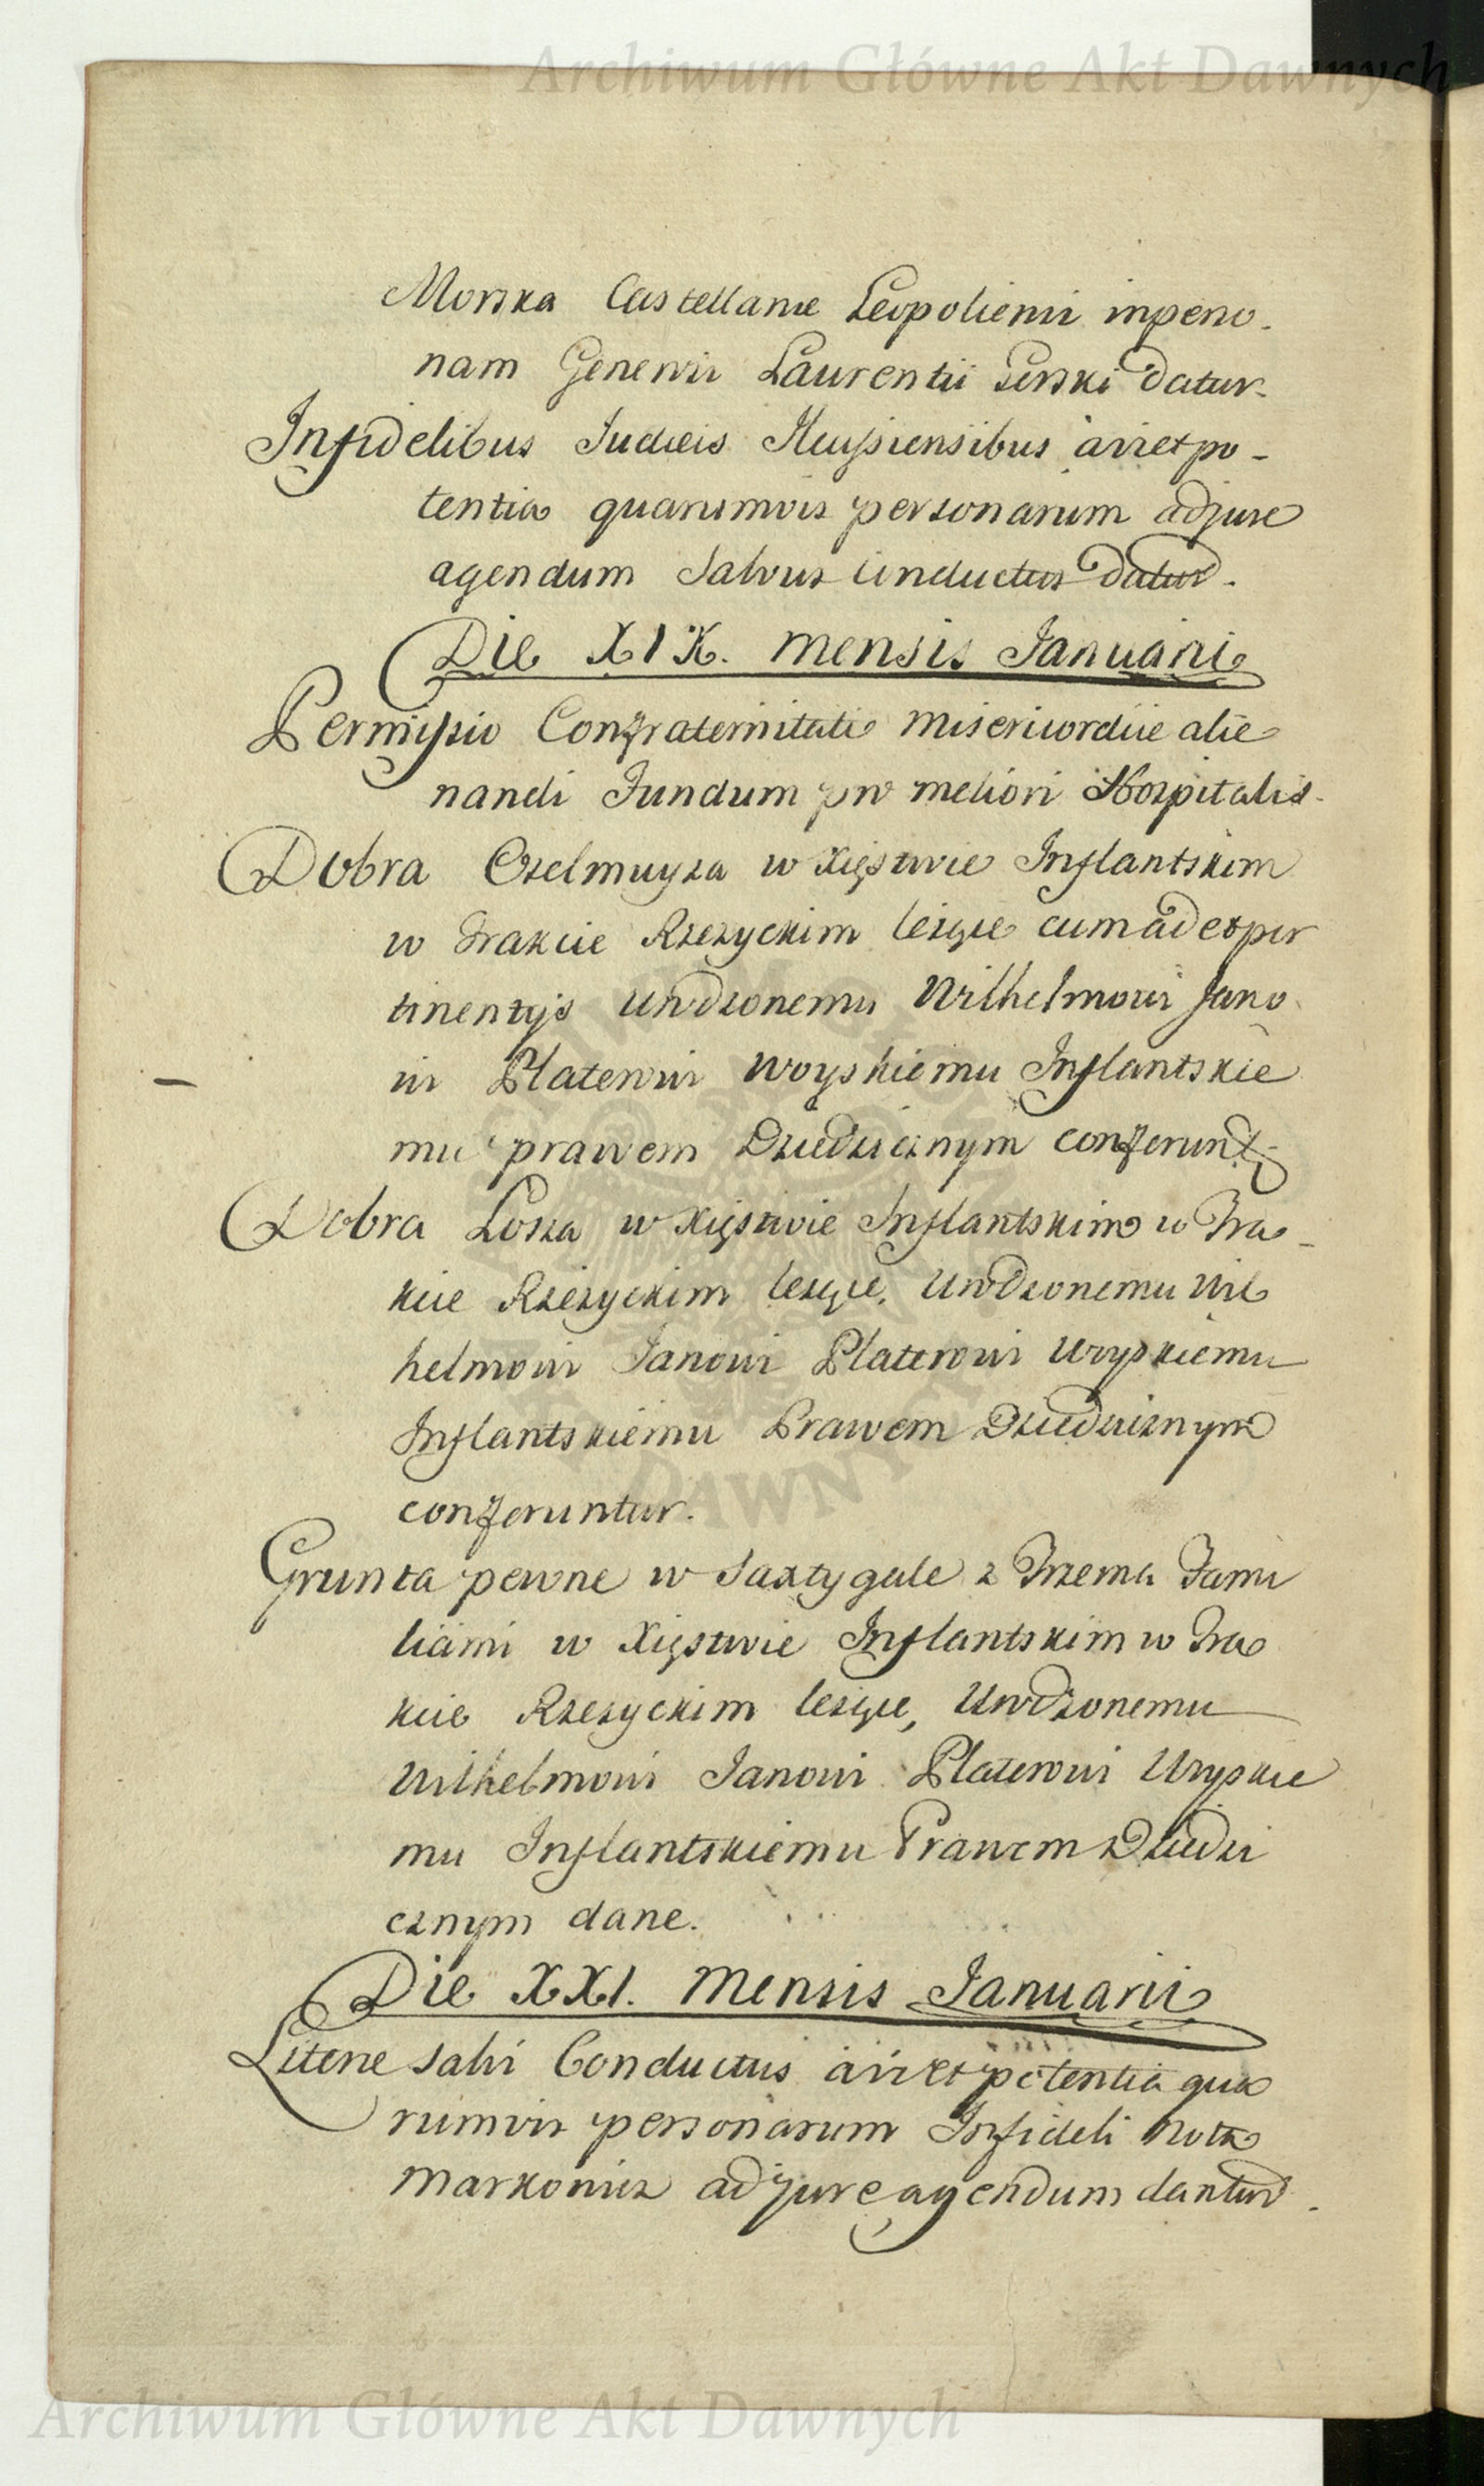 Archiwum Główne Akt Dawnych
Morska Castellanie Leopoliensi in perso-
nam Generosi Laurentii Serski datur.
Infidelibus Judaeis vi et po-
tentia quarumvis personarum ad jure
agendum Salvus Conductus datur.
Die XIX. Mensis Januarii
Permissio Confraternitati Misericordiae alie
nandi Fundum pro meliori Hospitalis.
Dobra Ozelmuyza w Xięstwie Inflantskim
w Trakcie Rzezyckim leżące cum ad et per
tinentijs Urodzonemu Wilhelmowi Jano
wi Platerowi Woyskiemu Inflantskie
mu prawem Dziedzicznym conferunt.
Dobra Losza w Xięstwie Inflantskim w Tra-
kcie Rzezyckim leżące, Urodzonemu Wil
helmowi Janowi Platerowi Woyskiemu
Inflantskiemu Prawem Dziedzicznym
conferuntur.
Grunta pewne w Saxtygale z Trzema Fami
liami w Xięstwie Inflantskim w Tra
kcie Rzezyckim leżące, Urodzonemu
Wilhelmowi Janowi Platerowi Woyskie
mu Inflantskiemu Prawem Dziedzi
cznym dane.
Die XXI. Mensis Januarii
Literae Salvi Conductus a vi et potentia qua
rumvis personarum Infideli Nota
Markowicz ad jure agendum dantur.
Archiwum Główne Akt Dawnych